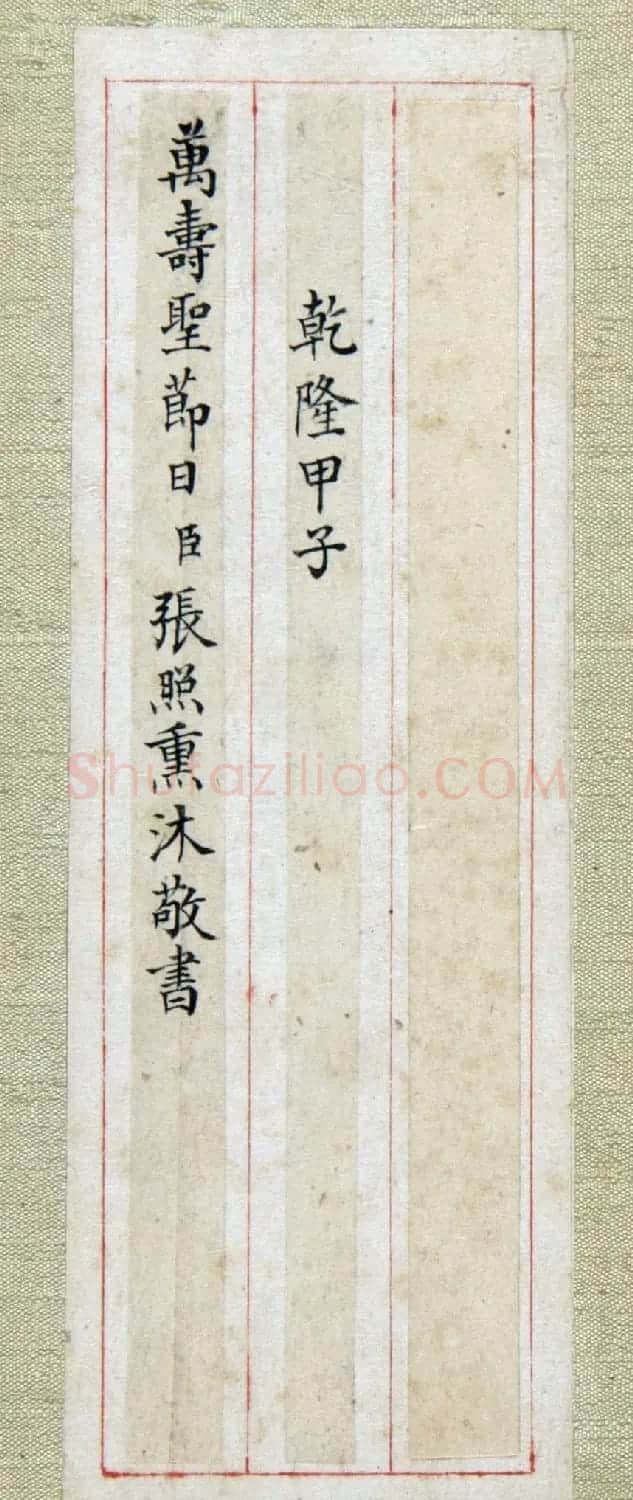 乾隆甲子
萬壽聖節日臣張照熏沐敬書
Shufaziliao.COM